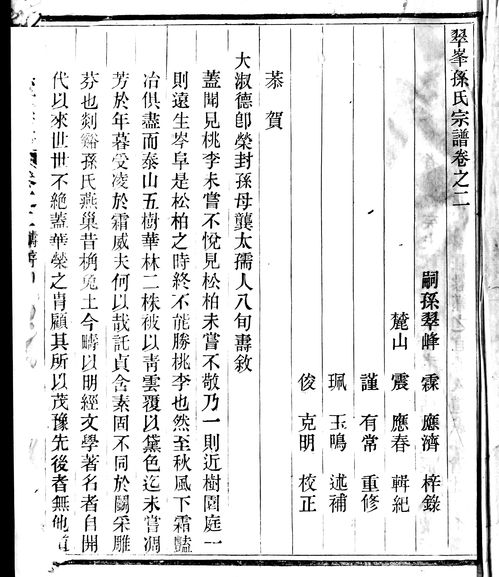 翠峯孫氏宗譜卷之二
嗣孫翠峰 霖 應濟 梓錄
麓山 震 應春 輯紀
謹 有常 重修
珮 玉鳴 述補
俊 克明 校正
恭賀
大淑德卽榮封孫母龔太孺人八旬壽敘
蓋聞見桃李未嘗不悅見松柏未嘗不敬乃一則近樹園庭一
則遠生岑阜是松柏之時終不能勝桃李也然至秋風下霜豔
冶俱盡而泰山五樹華林二株被以靑雲覆以黛色迄未嘗凋
芳於年暮受凌於霜威夫何以哉託貞含素固不同於鬭采雕
芬也剡谿孫氏燕巢昔桷兎土今疇以明經文學著名者自開
代以來世世不絶蓋華榮之胄顧其所以茂豫先後者無他